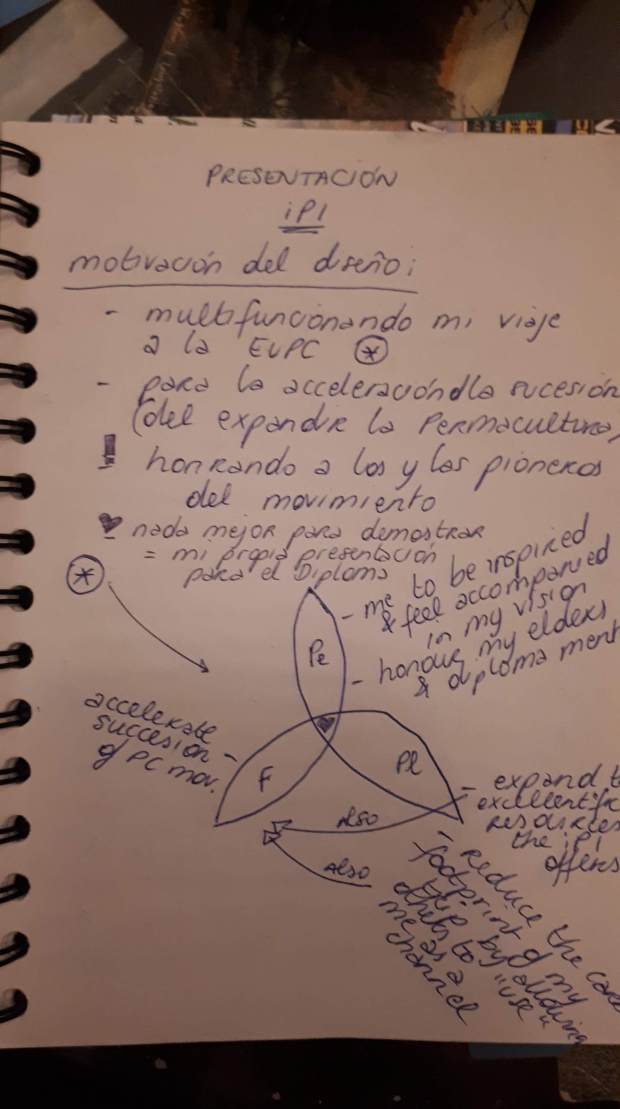 PRESENTACIÓN
iPI
motivación del diseño:
- multifuncionando mi viaje
a la EUPC *
- para la acceleración dla sucesión
(del expandir la Permacultura)
honrando a los y las pioneros
del movimiento
nada mejor para demostrar
= mi propia presentación
para el Diploma
*
- me to be inspired
& feel accompanied
in my vision
- honour my elders
& diploma ment
Pe
accelerate
succesion -
of PC mov.
F
Pl
- expand t
excellent
resources
the iPI
offers
Also
Also
- Reduce the car
footprint of my
trip by allowing
others to "use"
me as a
channel